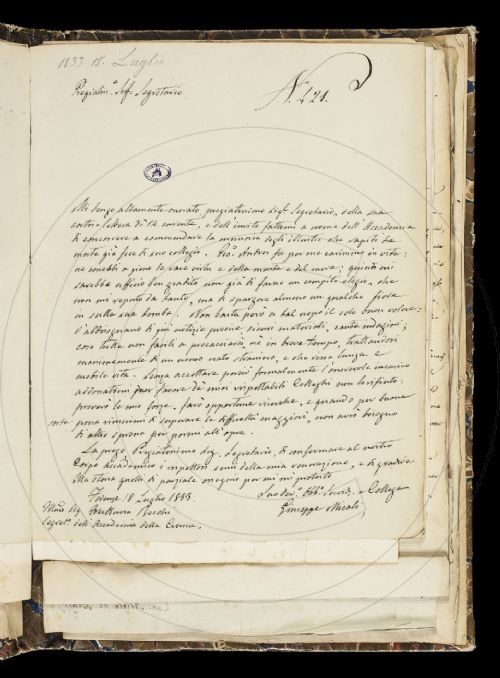 1833. 18. Luglio
Pregiatis.º Sig. Segretario
N.º 421.
Mi tengo altamente onorato, pregiatissimo Sig.r Segretario, della sua
cortese lettera di 12 corrente, e dell'invito fattomi a nome dell'Accademia
di concorrere a commendare la memoria degli illustri che rapiti da
morte già fece il suo collegio. fu per me carissimo in vita:
ne conobbi a pieno le rare virtù e della mente e del cuore; quindi mi
sarebbe ufficio ben gradito non già di farne un compito elogio, che
non me reputo da tanto, ma di spargere almeno un qualche fiore
in sulla sua tomba. Non basta però a tal uopo il solo buon volere:
v'abbisognano di più notizie precise, sicuri materiali, caute indagini;
cose tutte non facili a procacciarsi, nè in breve tempo, trattandosi
massimamente di un uomo nato straniero, e che visse lunga e
nobile vita. Senza accettare perciò formalmente l'onorevole incarico
addossatomi per favore de' miei rispettabili Colleghi non lo rifiuto:
proverò le mie forze, farò opportune ricerche, e quando per buona
sorte possa riuscirmi di superare le difficoltà maggiori, non avrò bisogno
di altro sprone per pormi all'opra.
La prego, Pregiatissimo Sig. Segretario, di confermare al nostro
Corpo Accademico i rispettosi sensi della mia venerazione, e di gradire
Ella stessa quelli di parziale ossequio per cui mi protesto
Firenze 18 Luglio 1833.
Suo dev.º Obb.º Servid.e e Collega
Giuseppe Micali
Illmo Sig. Fruttuoso Becchi
Segret.º dell'Accademia della Crusca.